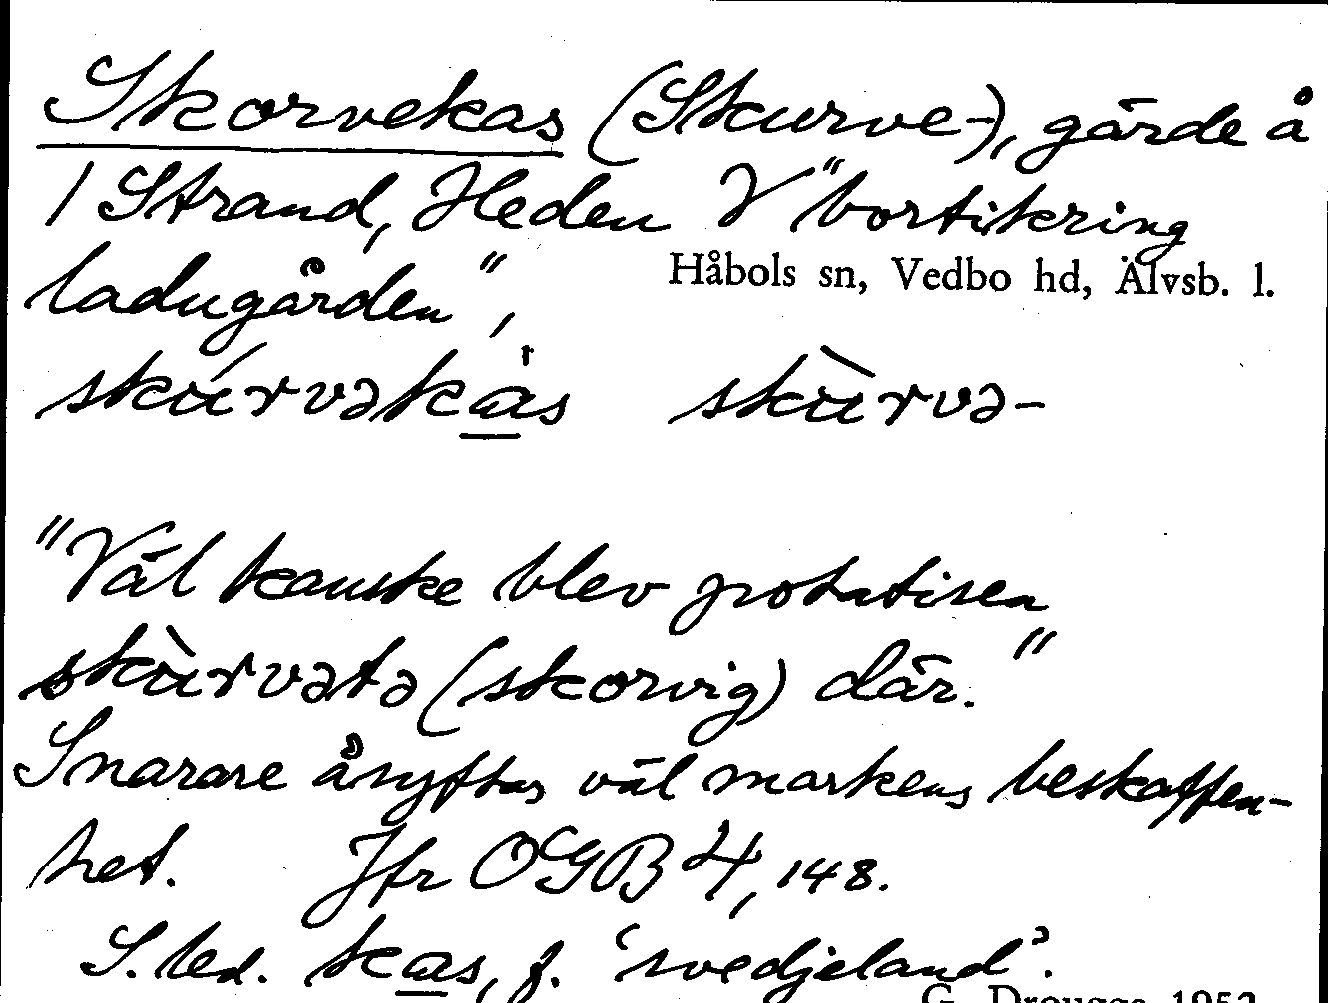 Skorvekas (Skurve-), gärde å
1 Strand, Heden V "bortikring
ladugården",
Håbols sn, Vedbo hd, Älvsb. l.
skúrvəkàs skùrvə-
"Väl kanske blev potatisen
skùrvətə (skorvig) där."
Snarare åsyftas väl markens beskaffen-
het. Jfr OGB 4, 148.
S. led. kas, f. 'svedjeland'.
G. Drougge 1952